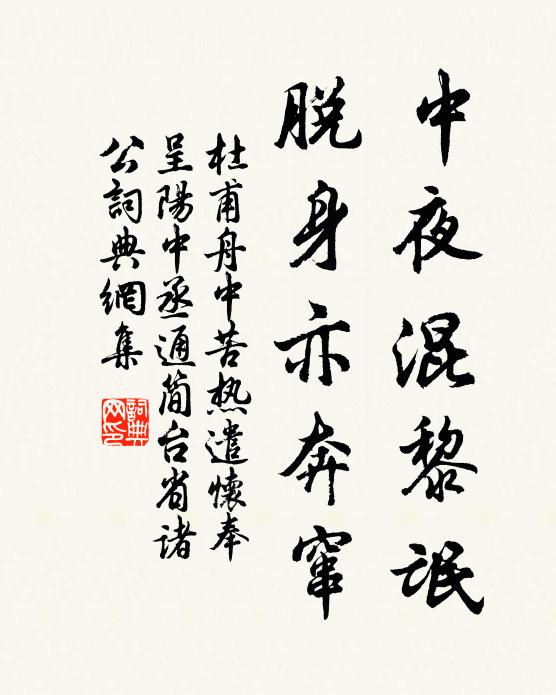 中夜混黎氓
脱身亦奔窜
杜甫舟中苦热遣懷奉
呈陽中丞通简台省诸
公詞典網集
詞典
网印